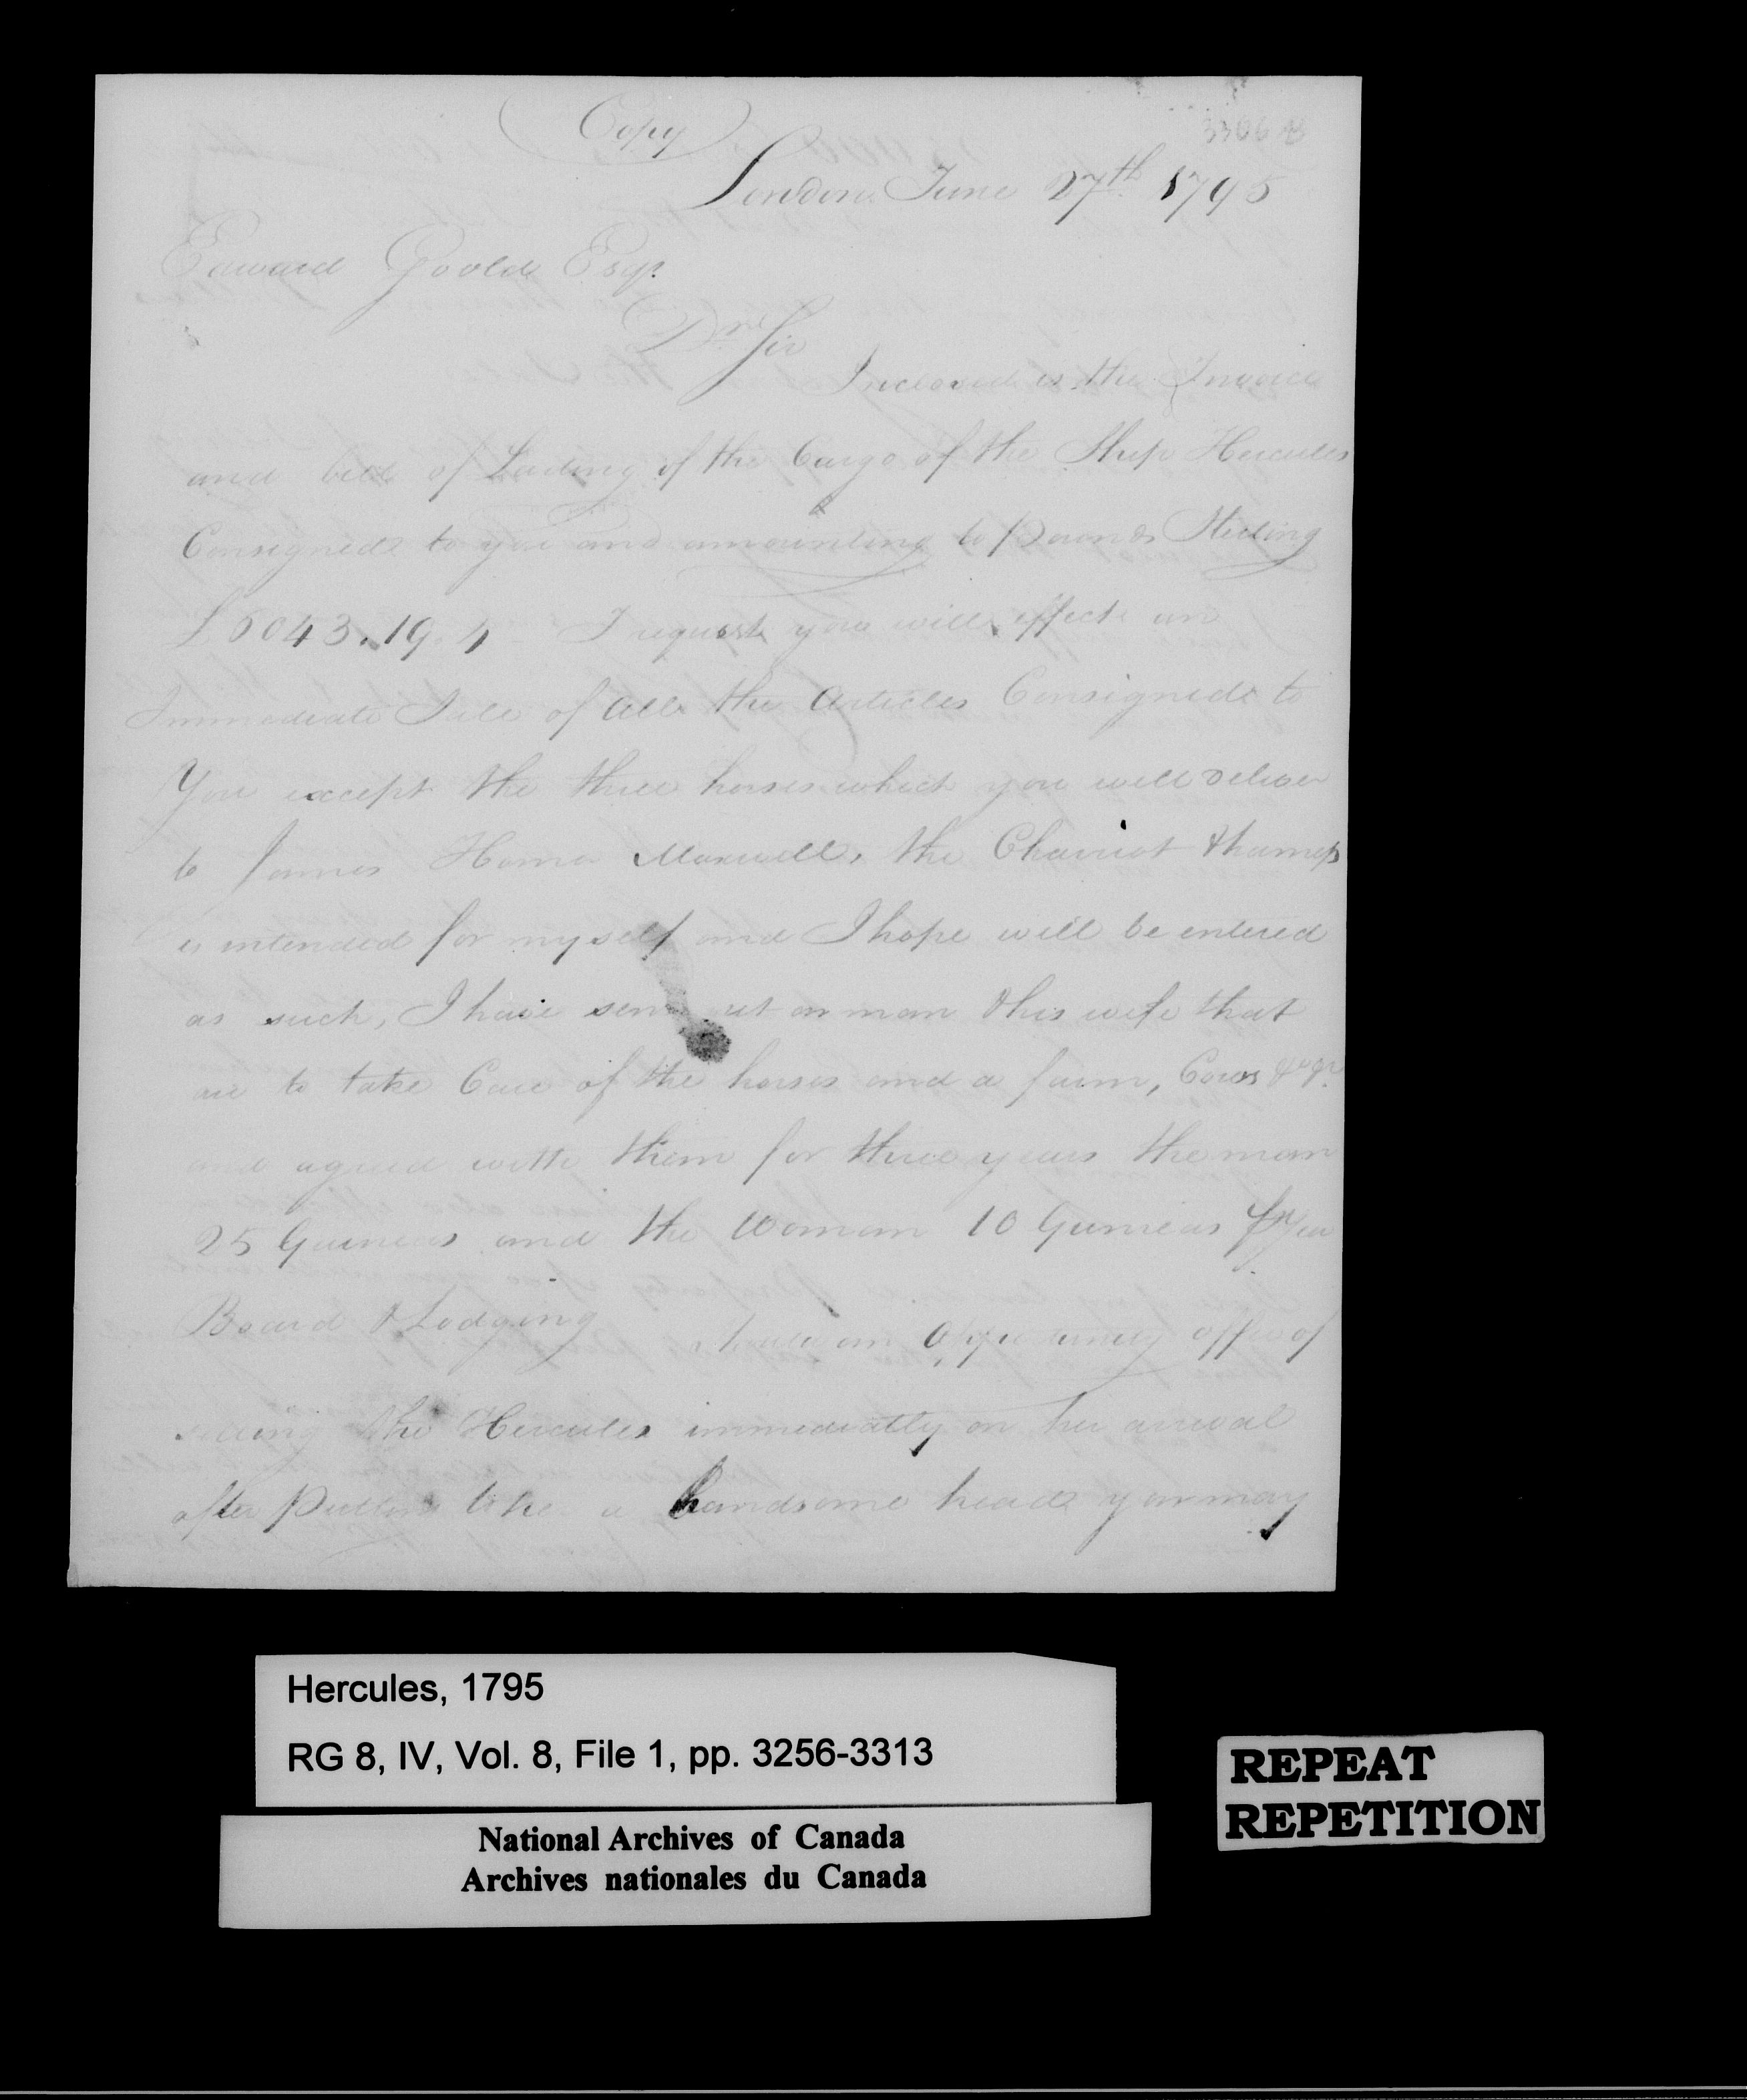 Copy
3306
London June 27th 1795
Edward Goold Esqr
Dr Sir
Inclosed is the Invoice
and bill of Lading of the Cargo of the Ship Hercules
Consigned to you and amounting to Pounds Sterling
£6043.19.4 I request you will effect an
Immediate Sale of all the Articles Consigned to
You except the three horses which you will deliver
to James Homer Maxwell, the Chariot & harness
is intended for myself and I hope will be entered
as such, I have sent out an man & his wife that
are to take Care of the horses and a farm, Cows
and agreed with them for three years the man
25 Guineas and the Woman 10 Guineas pr Year
Board & Lodging should an oppertunity offer of
selling the Hercules immediatly on her arrival
after putting to her a handsome head you may
Hercules, 1795
RG 8, IV, Vol. 8, File 1, pp. 3256-3313
National Archives of Canada
Archives nationales du Canada
REPEAT
REPETITION